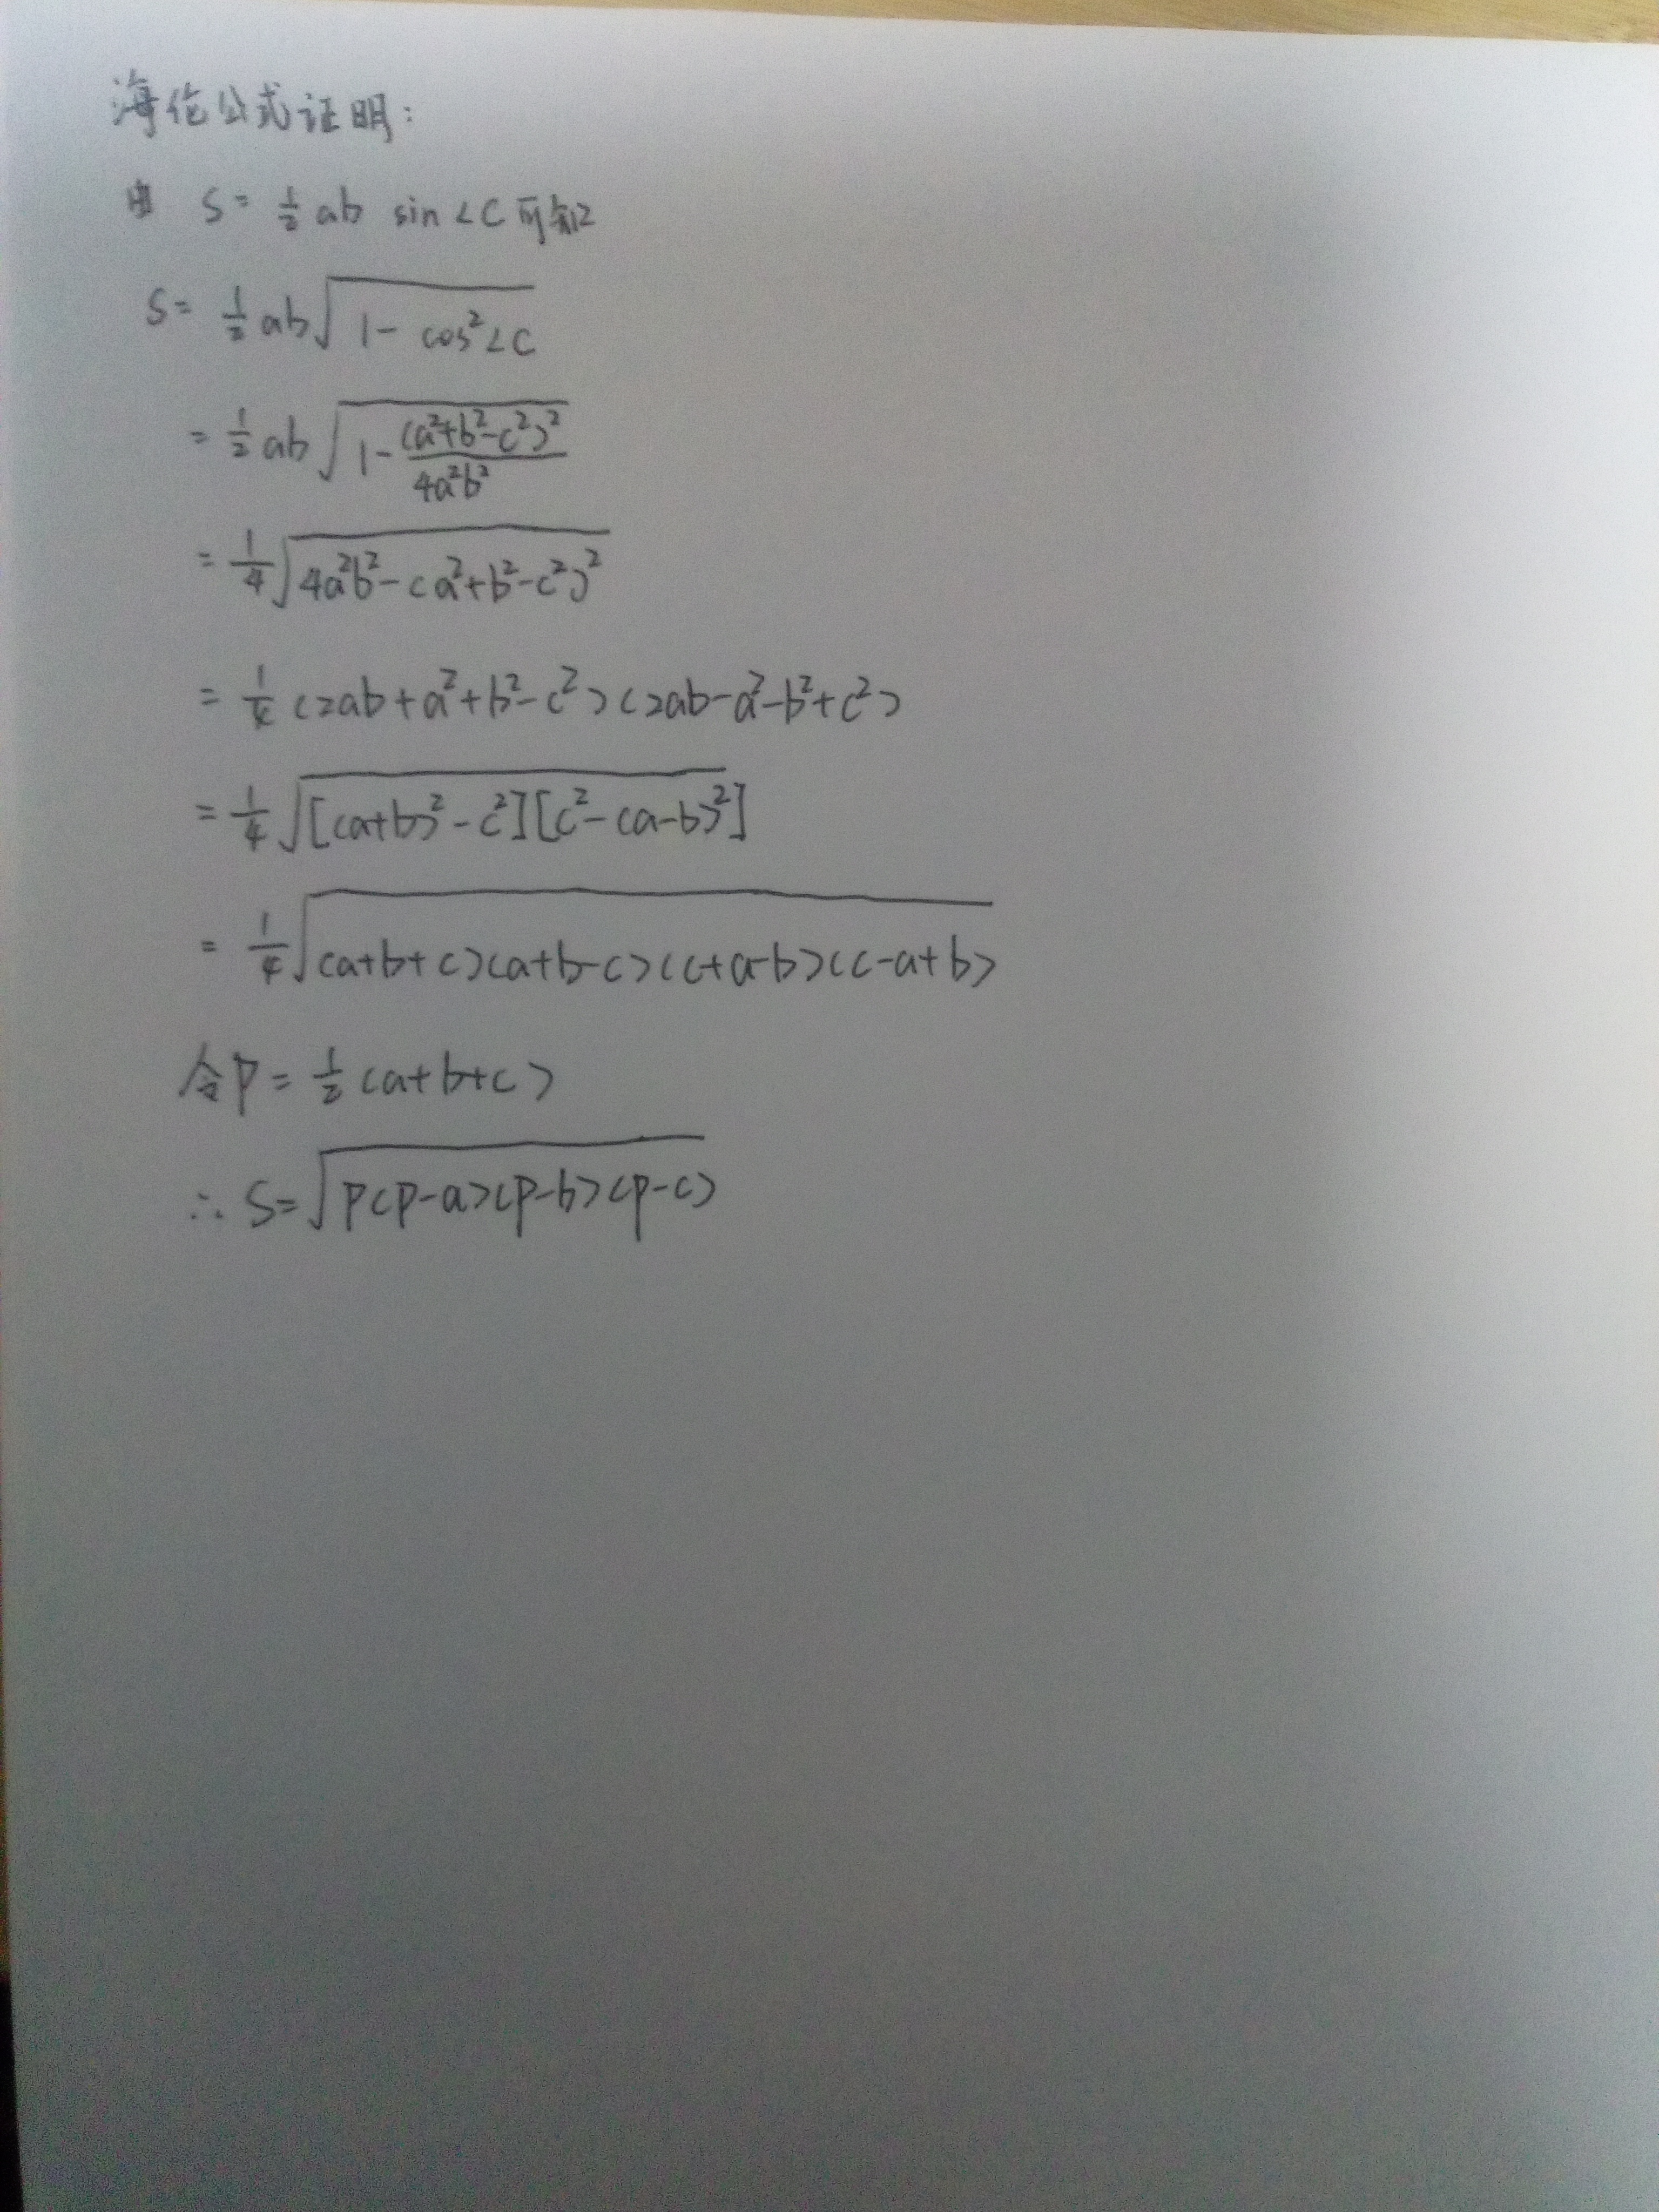 海伦公式证明：
由 S = 1/2 ab sin∠C 可知
S = 1/2 ab√(1 - cos²∠C)
= 1/2 ab√(1 - (a²+b²-c²)²/4a²b²)
= 1/4 √(4a²b² - (a²+b²-c²)²)
= 1/4 (2ab+a²+b²-c²)(2ab-a²-b²+c²)
= 1/4 √([(a+b)²-c²][c²-(a-b)²])
= 1/4 √((a+b+c)(a+b-c)(c+a-b)(c-a+b))
令P = 1/2 (a+b+c)
∴ S = √(P(P-a)(P-b)(P-c))